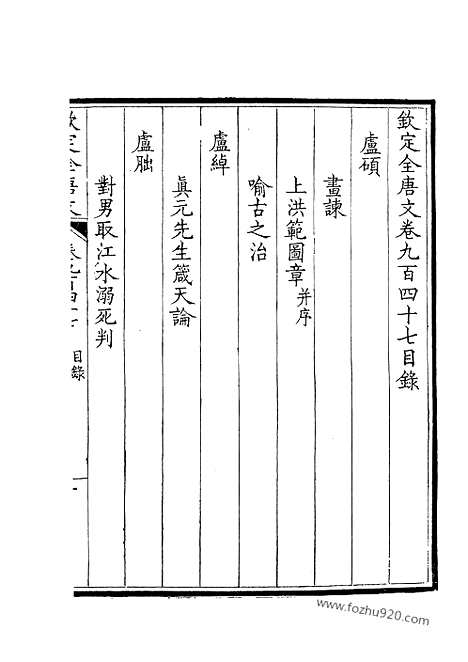 欽定全唐文卷九百四十七目錄
盧碩
畫諫
上洪範圖章并序
喻古之治
盧綽
眞元先生箴天論
盧朏
對男取江水溺死判
欽定全唐文
目錄
www.fozhu920.com